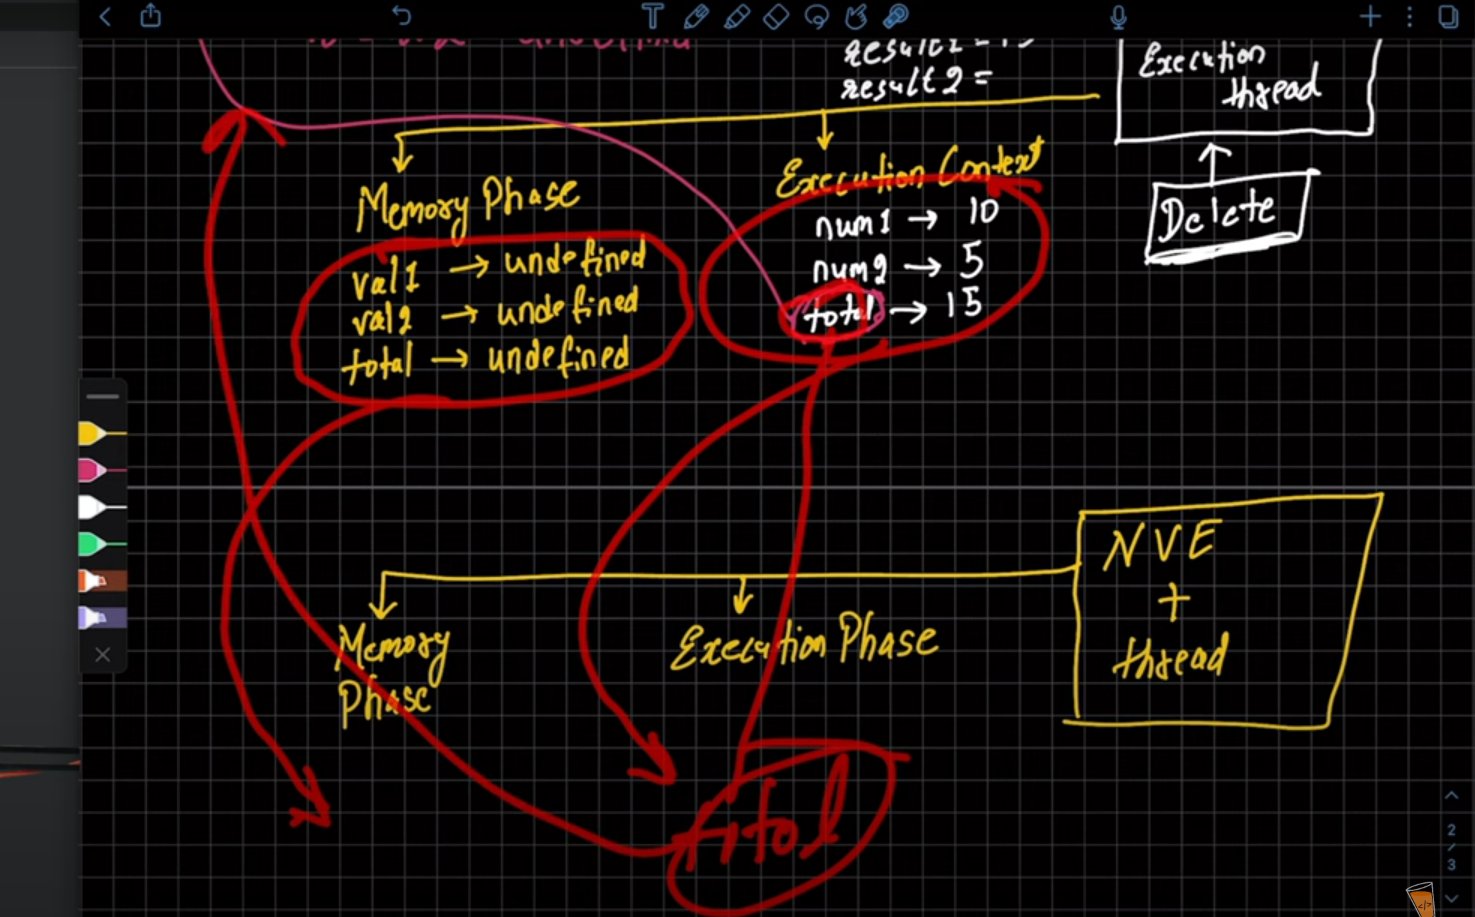 result2 =
Execution
thread
Delete
Memory Phase
val1 → undefined
val2 → undefined
total → undefined
Execution Context
num1 → 10
num2 → 5
total → 15
NVE
+
thread
Memory
Phase
Execution Phase
total
2
/
3